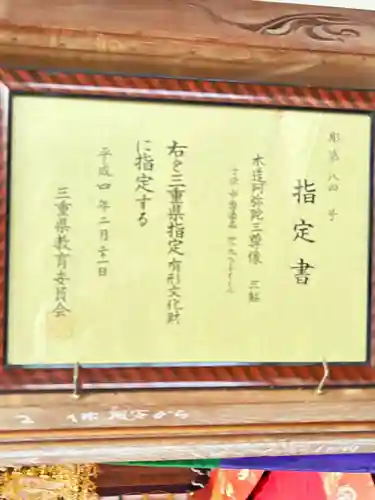 彫第八四号
指定書
木造阿弥陀三尊像 三軀
右を三重県指定有形文化財
に指定する
平成四年二月二十一日
三重県教育委員会